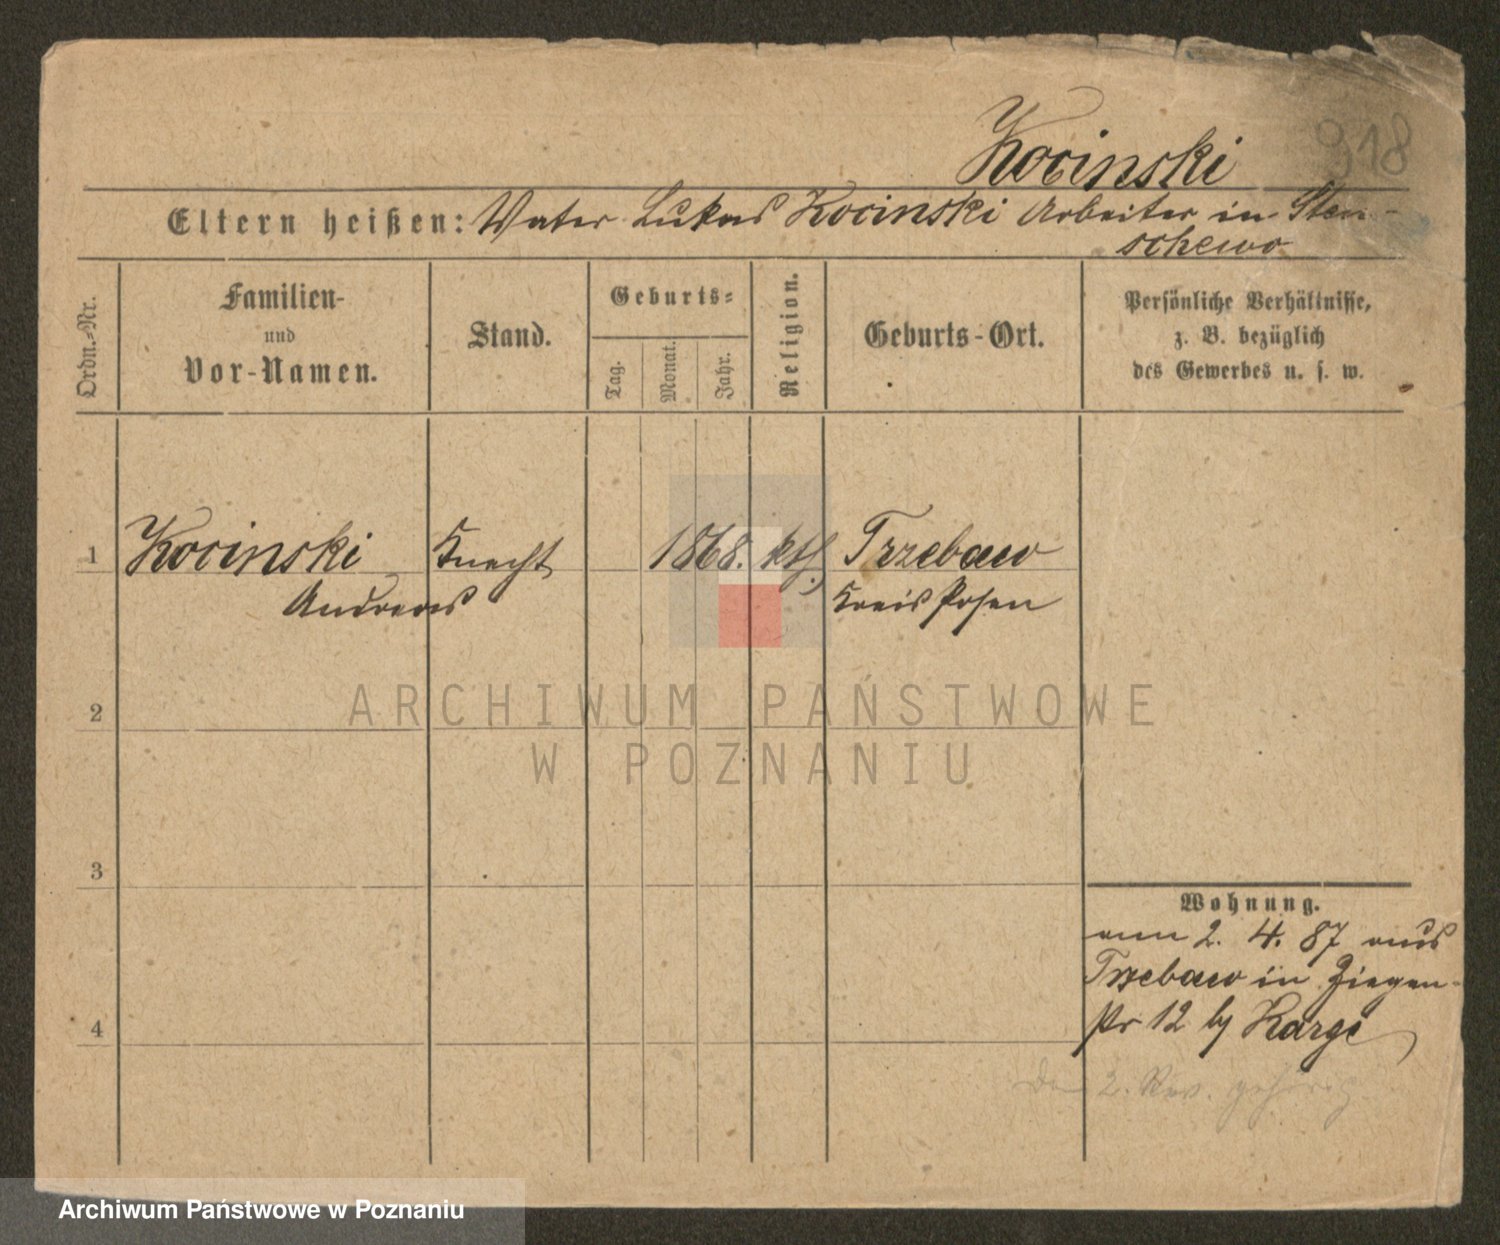 Kocinski
918
Eltern heißen: Vater Lukas Kocinski Arbeiter in Sten-
schewo
Ordn.-Nr.
Familien-
und
Vor-Namen.
Stand.
Geburts-
Tag.
Monat.
Jahr.
Religion.
Geburts-Ort.
Persönliche Verhältnisse,
z. B. bezüglich
des Gewerbes u. s. w.
1 Kocinski Knecht 1868. kth. Trzebaw
Andreas Kreis Posen
2
3
4
Wohnung.
am 2. 4. 87 aus
Trzebaw in Ziegen-
str 12 by Karge
2. Rev. gehörig
ARCHIWUM PAŃSTWOWE
W POZNANIU
Archiwum Państwowe w Poznaniu